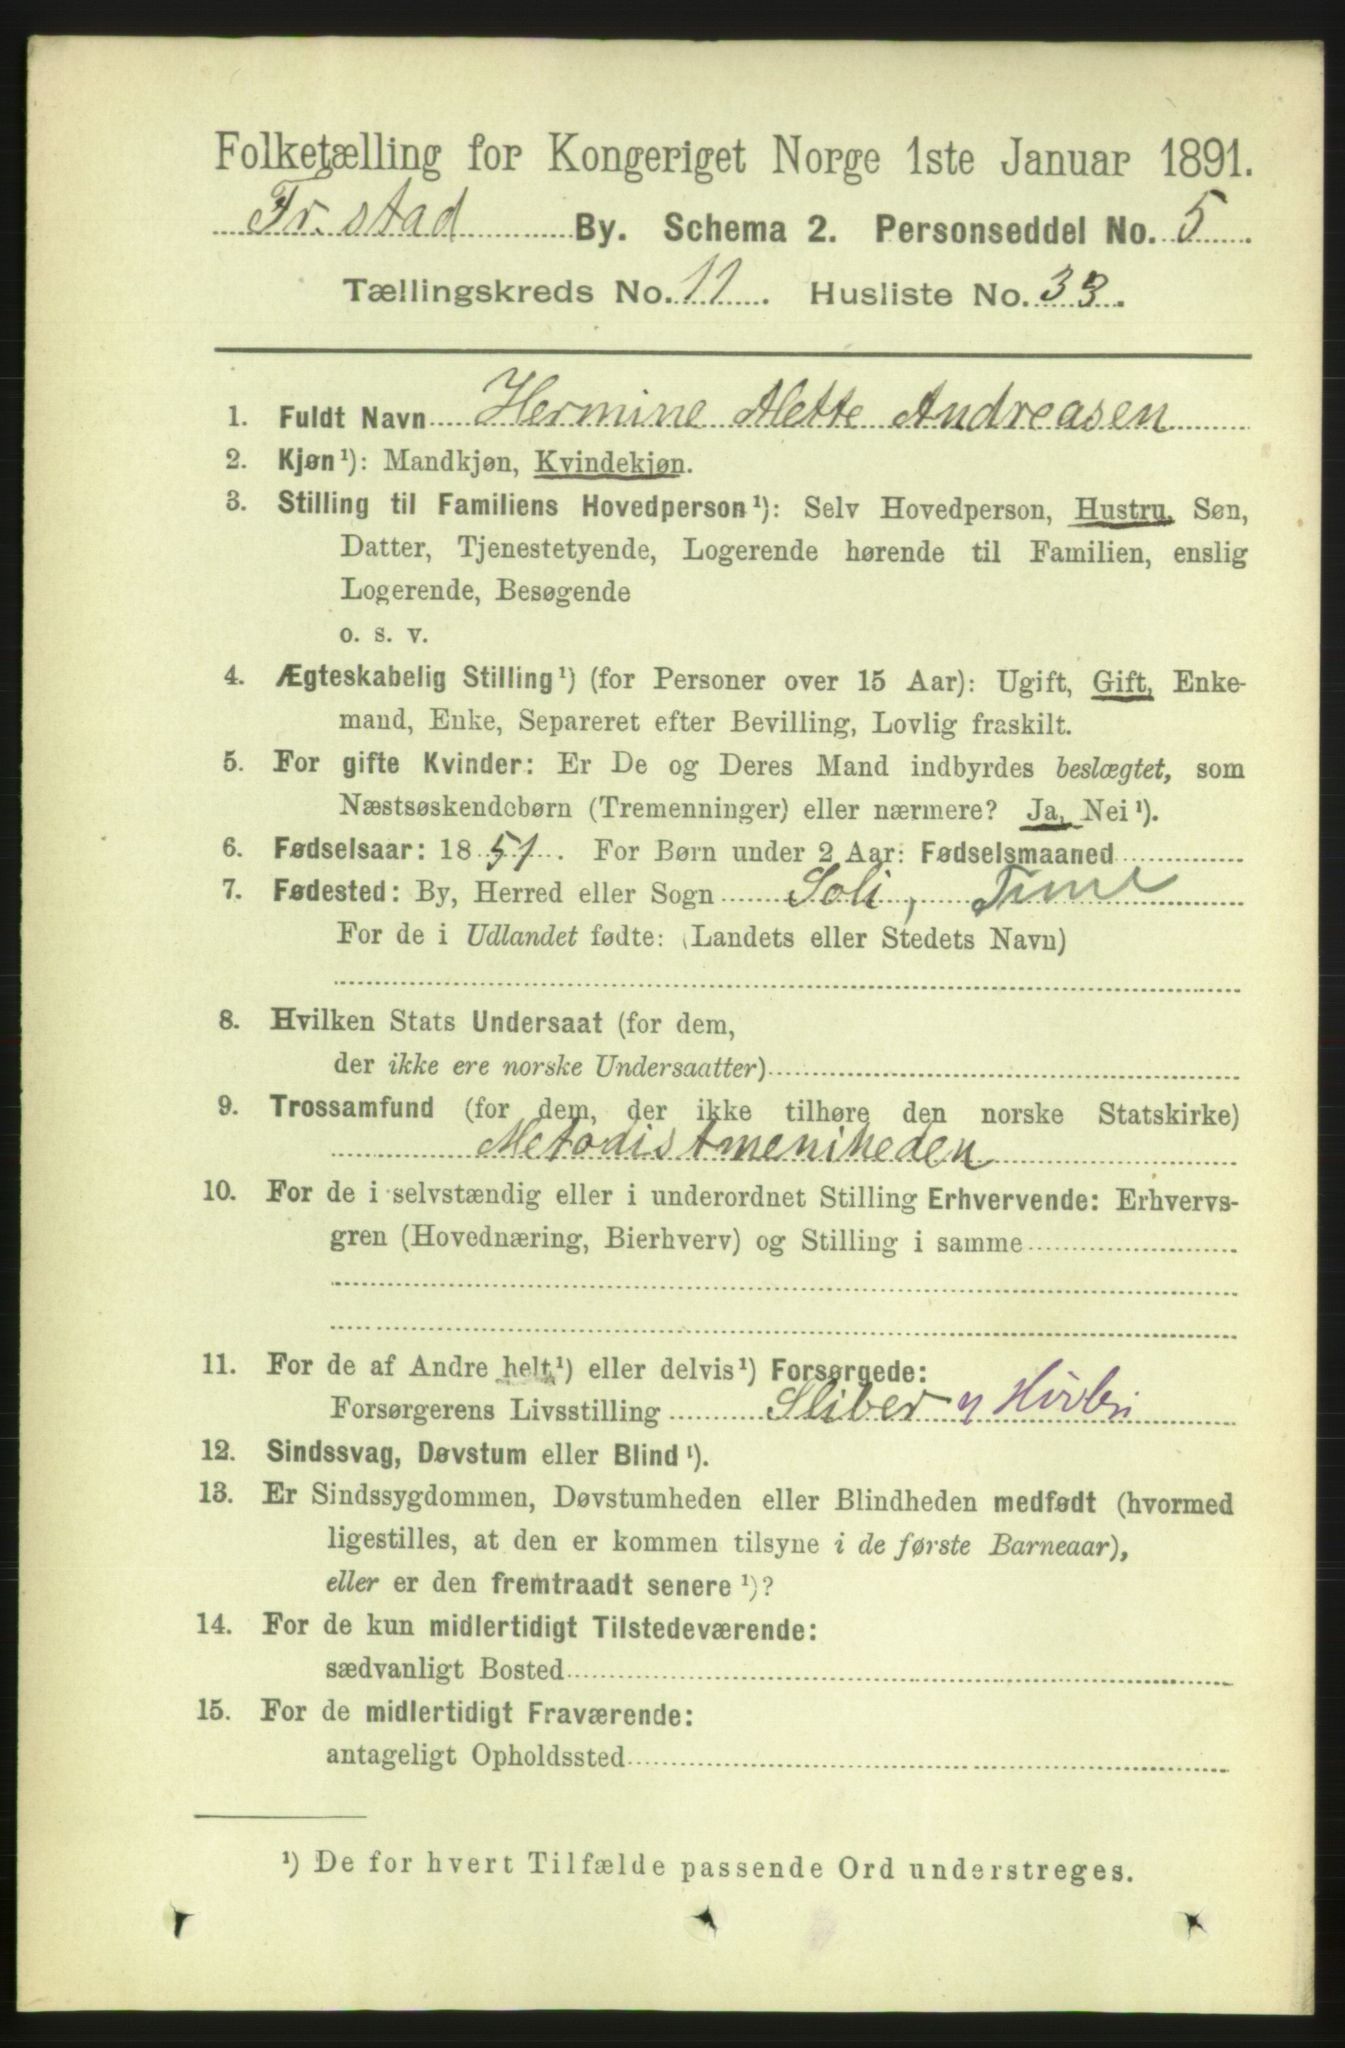 Folketælling for Kongeriget Norge 1ste Januar 1891.
Fr. stad By. Schema 2. Personseddel No. 5
Tællingskreds No. 11. Husliste No. 33.
1. Fuldt Navn Hermine Alette Andreasen
2. Kjøn¹): Mandkjøn, Kvindekjøn.
3. Stilling til Familiens Hovedperson¹): Selv Hovedperson, Hustru, Søn,
Datter, Tjenestetyende, Logerende hørende til Familien, enslig
Logerende, Besøgende
o. s. v.
4. Ægteskabelig Stilling¹) (for Personer over 15 Aar): Ugift, Gift, Enke-
mand, Enke, Separeret efter Bevilling, Lovlig fraskilt.
5. For gifte Kvinder: Er De og Deres Mand indbyrdes beslægtet, som
Næstsøskendebørn (Tremenninger) eller nærmere? Ja, Nei¹).
6. Fødselsaar: 1851. For Børn under 2 Aar: Fødselsmaaned
7. Fødested: By, Herred eller Sogn Soli, Tune
For de i Udlandet fødte: (Landets eller Stedets Navn)
8. Hvilken Stats Undersaat (for dem,
der ikke ere norske Undersaatter)
9. Trossamfund (for dem, der ikke tilhøre den norske Statskirke)
Metodistmeniheden
10. For de i selvstændig eller i underordnet Stilling Erhvervende: Erhvervs-
gren (Hovednæring, Bierhverv) og Stilling i samme
11. For de af Andre helt¹) eller delvis¹) Forsørgede:
Forsørgerens Livsstilling Sliber
12. Sindssvag, Døvstum eller Blind¹).
13. Er Sindssygdommen, Døvstumheden eller Blindheden medfødt (hvormed
ligestilles, at den er kommen tilsyne i de første Barneaar),
eller er den fremtraadt senere¹)?
14. For de kun midlertidigt Tilstedeværende:
sædvanligt Bosted
15. For de midlertidigt Fraværende:
antageligt Opholdssted
¹) De for hvert Tilfælde passende Ord understreges.